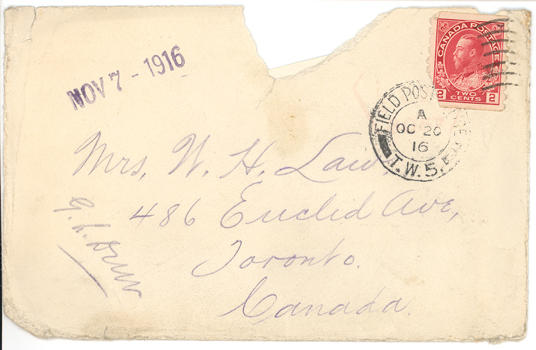 NOV 7 - 1916
CANADA POSTAGE
2 TWO CENTS 2
FIELD POST
A
OC 20
16
T.W.5.
Mrs. W. H. Law
486 Euclid Ave,
Toronto.
Canada.
G. L.